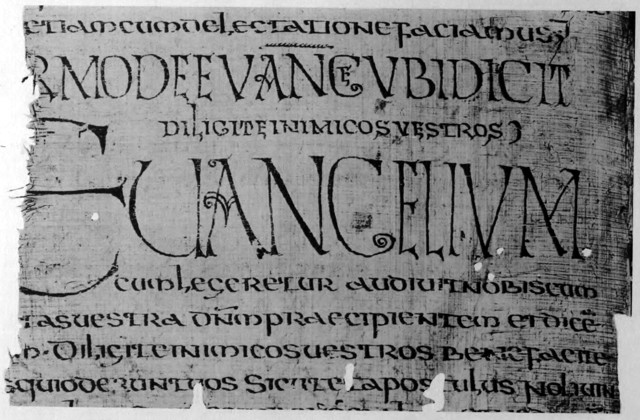 etiam cum delectatione faciamus
RMO DE EVANGE VBI DICIT
DILIGITE INIMICOS VESTROS
EUANGELIVM
cum legeretur audiuit nobiscum
tas uestra dn̄m praecipientem et dicē
Diligite inimicos uestros benefacite
s qui oderunt uos Sicut et apos tulus